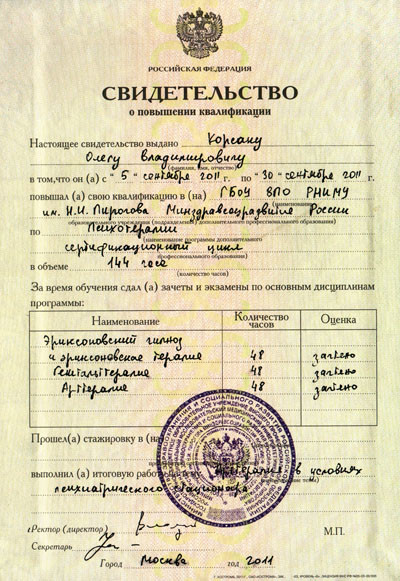 РОССИЙСКАЯ ФЕДЕРАЦИЯ
СВИДЕТЕЛЬСТВО
о повышении квалификации
Настоящее свидетельство выдано Корсану
Олегу Владимировичу
(фамилия, имя, отчество)
в том,что он (а) с "5" сентября 2011 г. по "30" сентября 2011 г.
повышал (а) свою квалификацию в (на) ГБОУ ВПО РНИМУ
(наименование)
им. Н.И. Пирогова Минздравсоцразвития России
образовательного учреждения (подразделения) дополнительного профессионального образования)
по Психотерапии
(наименование программы дополнительного
сертификационный цикл
профессионального образования)
в объеме 144 часа
(количество часов)
За время обучения сдал (а) зачеты и экзамены по основным дисциплинам
программы:
Наименование Количество часов Оценка
Эриксоновский гипноз
и эриксоновская терапия 48 зачтено
Гештальттерапия 48 зачтено
Арттерапия 48 зачтено
Прошел(а) стажировку в (на)
выполнил (а) итоговую работу Арттерапия в условиях
психиатрического стационара
Ректор (директор)
М.П.
Секретарь
Город Москва год 2011